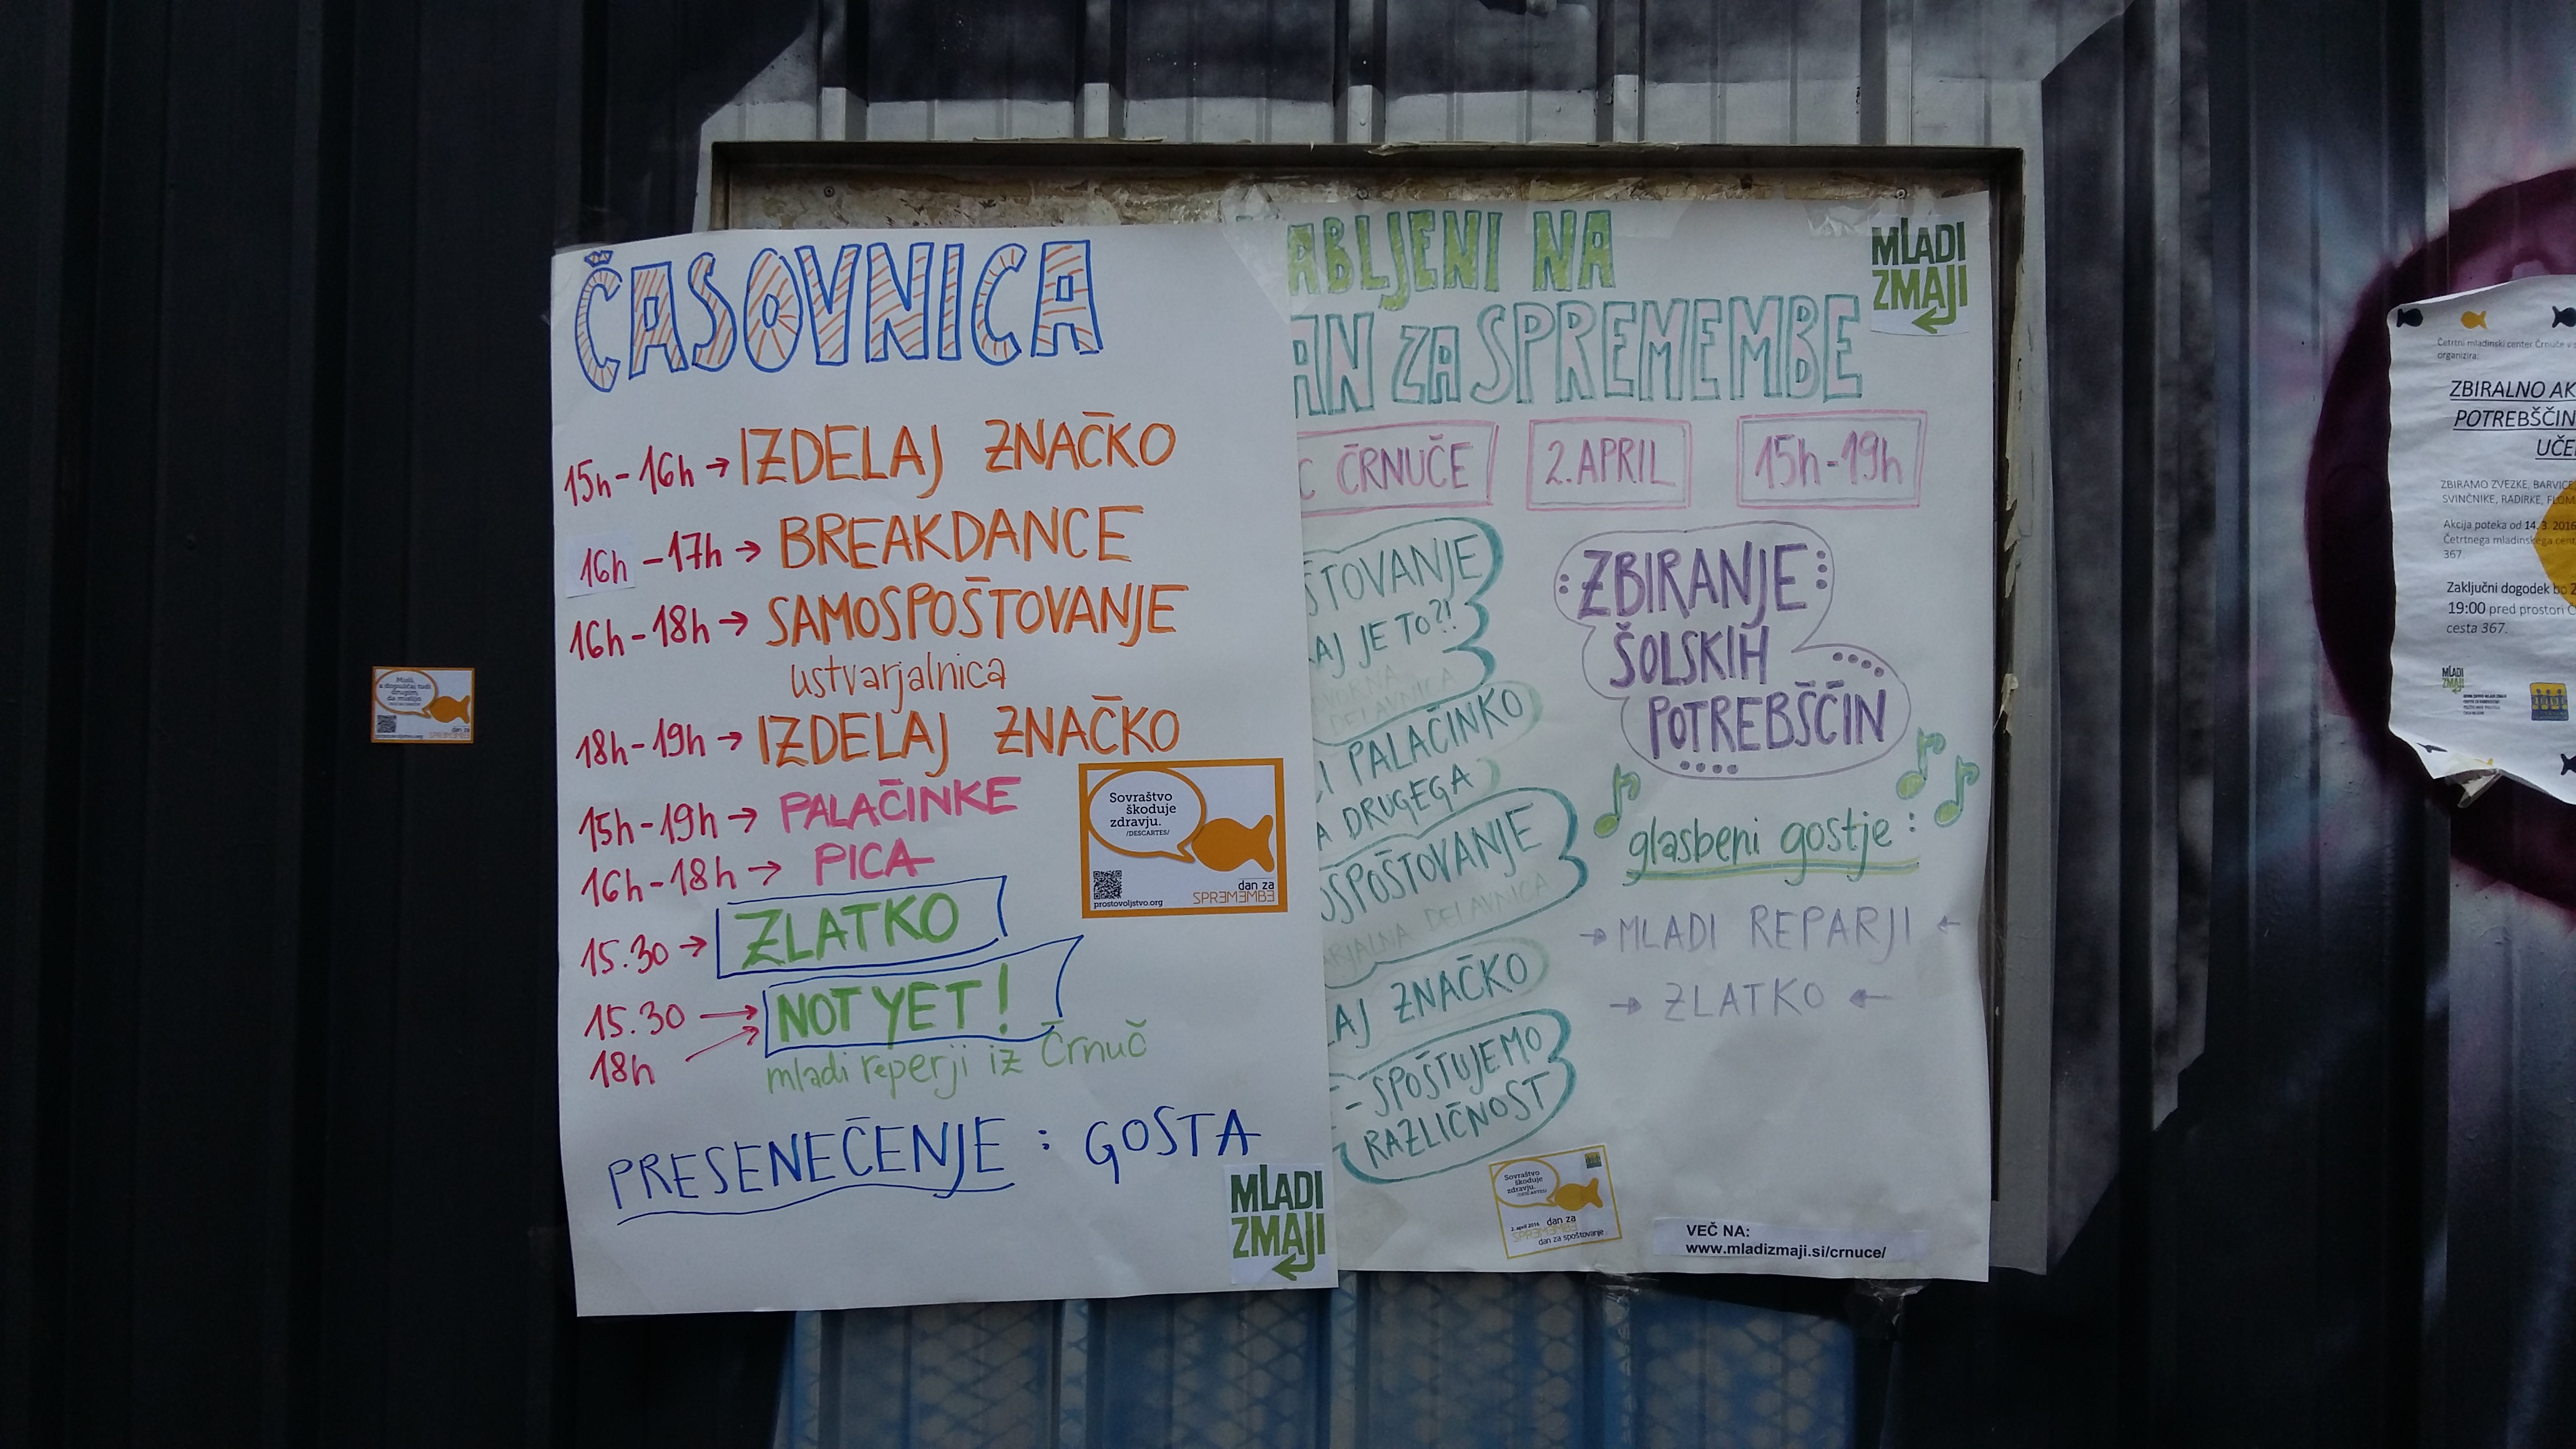 ČASOVNICA
15h-16h → IZDELAJ ZNAČKO
16h-17h → BREAKDANCE
16h-18h → SAMOSPOŠTOVANJE
ustvarjalnica
18h-19h → IZDELAJ ZNAČKO
15h-19h → PALAČINKE
16h-18h → PICA
15.30 → ZLATKO
15.30 → NOT YET!
18h
mladi reperji iz Črnuč
PRESENEČENJE : GOSTA
Sovraštvo
škoduje
zdravju.
/DESCARTES/
dan za
SPREMEMBE
prostovoljstvo.org
MLADI
ZMAJI
ABLJENI NA
AN ZA SPREMEMBE
MLADI
ZMAJI
C ČRNUČE
2. APRIL
15h-19h
ŠTOVANJE
AJ JE TO?!
DELAVNICA
I PALAČINKO
A DRUGEGA
OSPOŠTOVANJE
RJALNA DELAVNICA
AJ ZNAČKO
E - SPOŠTUJEMO
RAZLIČNOST
ZBIRANJE
ŠOLSKIH
POTREBŠČIN
glasbeni gostje :
→ MLADI REPARJI ←
→ ZLATKO ←
Sovraštvo
škoduje
zdravju.
2. april 2016 dan za
SPREMEMBE
dan za spoštovanje
VEČ NA:
www.mladizmaji.si/crnuce/
Misli,
a dopuščaj tudi
drugim,
da mislijo
dan za
SPREMEMBE
prostovoljstvo.org
Četrtni mladinski center Črnuče v s
organizira:
ZBIRALNO AK
POTREBŠČIN
UČE
ZBIRAMO ZVEZKE, BARVICE
SVINČNIKE, RADIRKE, FLOM
Akcija poteka od 14.3.2016
Četrtnega mladinskega cent
367.
Zaključni dogodek bo 2
19:00 pred prostori Č
cesta 367.
MLADI
ZMAJI